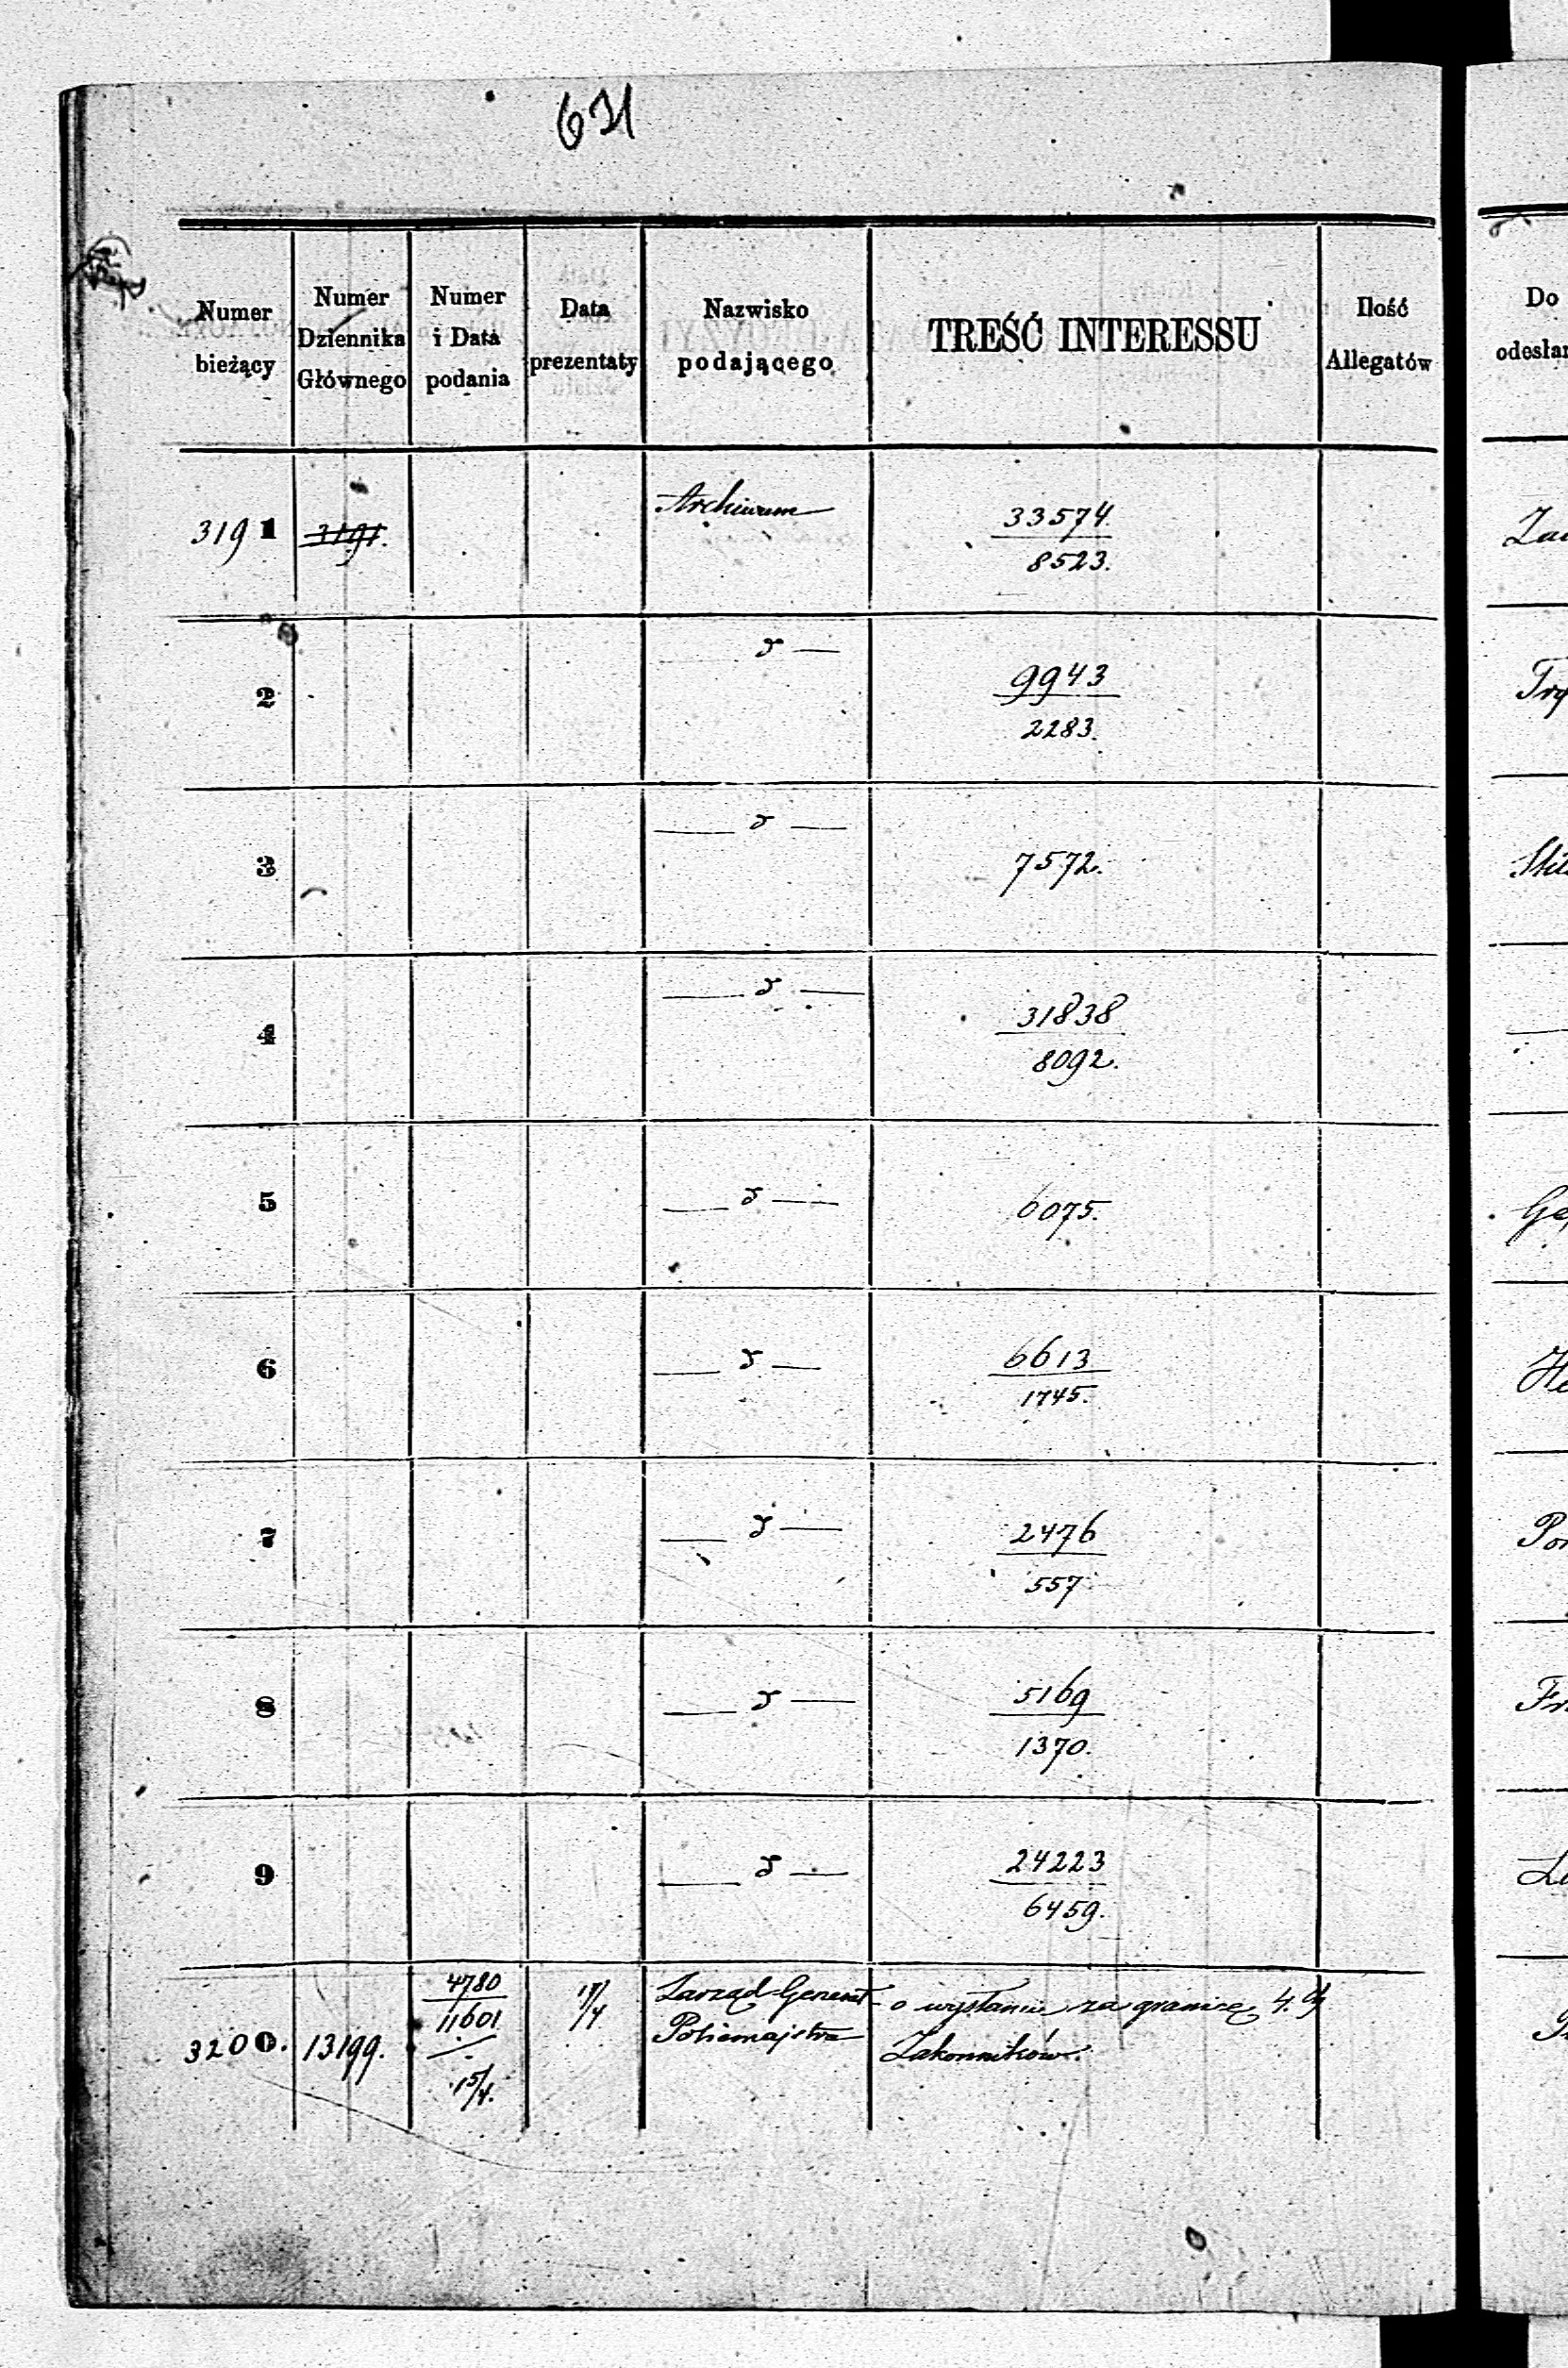 631
Numer bieżący
Numer Dziennika Głównego
Numer i Data podania
Data prezentaty
Nazwisko podającego
TREŚĆ INTERESSU
Ilość Allegatów
Do
3191 3191. Archiwum 33574
8523.
2 d 9943
2283.
3 d 7572.
4 d 31838
8092.
5 d 6075.
6 d 6613
1745.
7 d 2476
557
8 d 5169
1370.
9 d 24223
6459.
3200. 13199. 4780
11601
15/4. 17/4 Zarząd Generał
Policmajstra
o wysłaniu za granicę 4.
Zakonników.